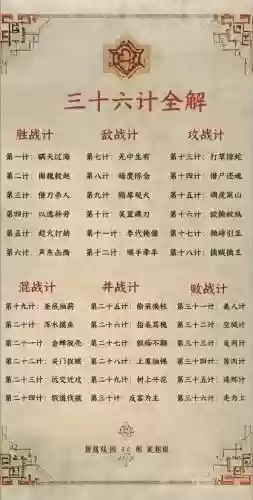 三十六计全解
胜战计
第一计：瞒天过海
第二计：围魏救赵
第三计：借刀杀人
第四计：以逸待劳
第五计：趁火打劫
第六计：声东击西
敌战计
第七计：无中生有
第八计：暗度陈仓
第九计：隔岸观火
第十计：笑里藏刀
第十一计：李代桃僵
第十二计：顺手牵羊
攻战计
第十三计：打草惊蛇
第十四计：借尸还魂
第十五计：调虎离山
第十六计：欲擒故纵
第十七计：抛砖引玉
第十八计：擒贼擒王
混战计
第十九计：釜底抽薪
第二十计：浑水摸鱼
第二十一计：金蝉脱壳
第二十二计：关门捉贼
第二十三计：远交近攻
第二十四计：假道伐虢
并战计
第二十五计：偷梁换柱
第二十六计：指桑骂槐
第二十七计：假痴不癫
第二十八计：上屋抽梯
第二十九计：树上开花
第三十计：反客为主
败战计
第三十一计：美人计
第三十二计：空城计
第三十三计：反间计
第三十四计：苦肉计
第三十五计：连环计
第三十六计：走为上